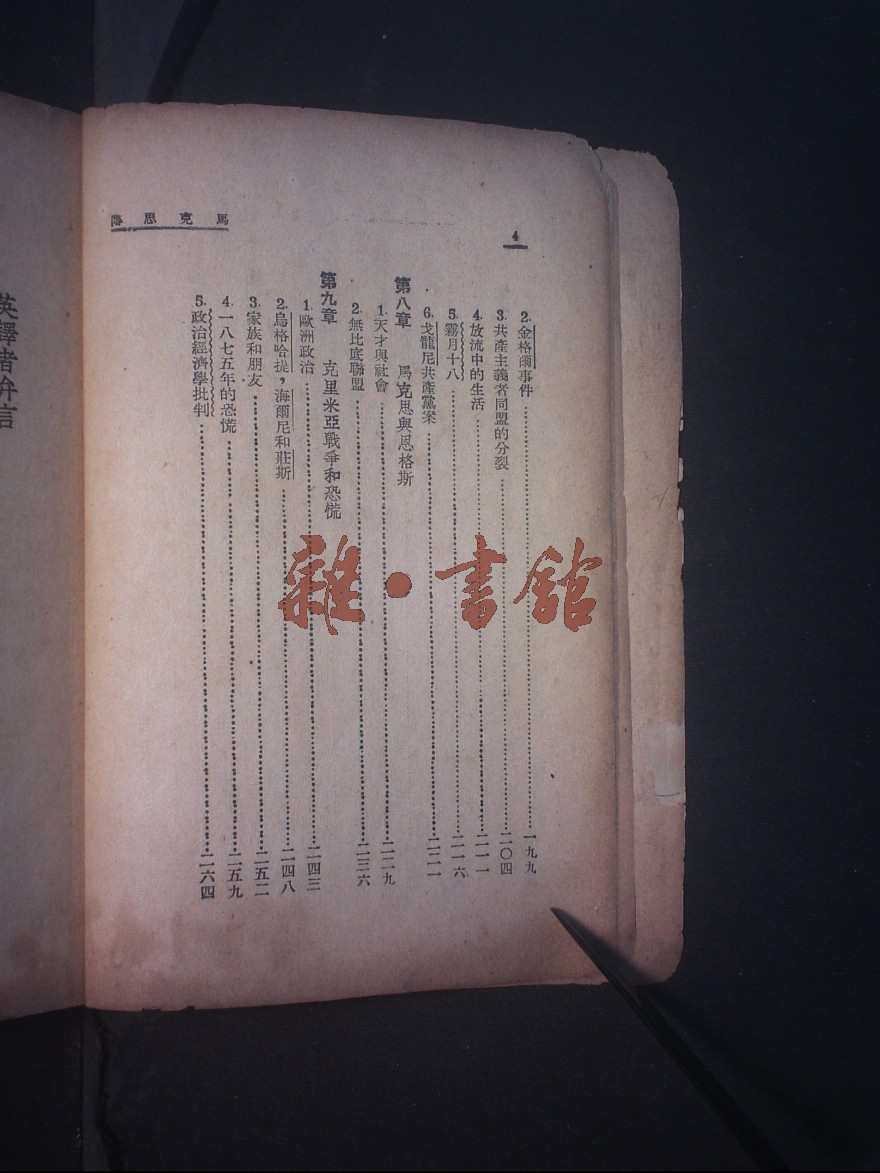 馬克思傳
4
2. 金格爾事件 一九九
3. 共產主義者同盟的分裂 二〇四
4. 放流中的生活 二一一
5. 霧月十八 二一六
6. 戈龍尼共產黨案 二二一
第八章 馬克思與恩格斯
1. 天才與社會 二二九
2. 無比底聯盟 二三六
第九章 克里米亞戰爭和恐慌
1. 歐洲政治 二四三
2. 烏格哈提，海爾尼和莊斯 二四八
3. 家族和朋友 二五二
4. 一八七五年的恐慌 二五九
5. 政治經濟學批判 二六四
英譯者弁言
雜·書館